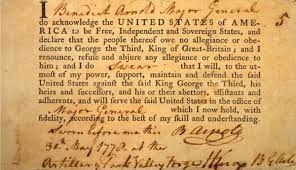 I Benedict Arnold Major General 5
do acknowledge the UNITED STATES of AME-
RICA to be Free, Independent and Sovereign States, and
declare that the people thereof owe no allegiance or obe-
dience to George the Third, King of Great-Britain; and I
renounce, refuse and abjure any allegiance or obedience
to him; and I do Swear that I will, to the ut-
most of my power, support, maintain and defend the said
United States against the said King George the Third, his
heirs and successors, and his or their abettors, assistants and
adherents, and will serve the said United States in the office
of Major General which I now hold, with
fidelity, according to the best of my skill and understanding.
Sworn before me this B Arnold
30th May 1778 at the
Artillery Park Valley Forge H Knox B G Arty